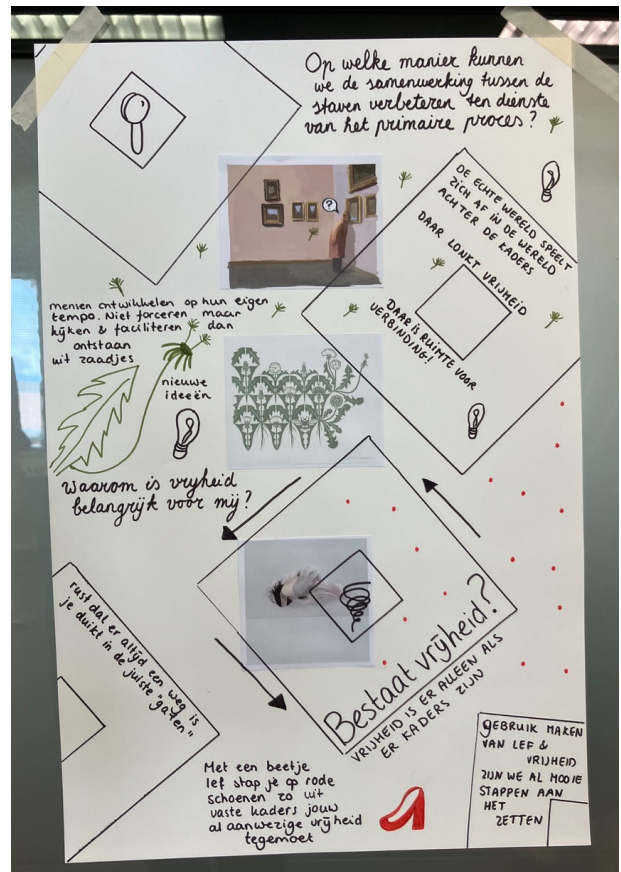 Op welke manier kunnen
we de samenwerking tussen de
staven verbeteren ten dienste
van het primaire proces?
?
DE ECHTE WERELD SPEELT
ZICH AF IN DE WERELD
ACHTER DE KADERS
DAAR LONKT VRIJHEID
DAAR IS RUIMTE VOOR
VERBINDING!
mensen ontwikkelen op hun eigen
tempo. Niet forceren, maar
kijken & faciliteren dan
ontstaan
uit zaadjes
nieuwe
ideeën
Waarom is vrijheid
belangrijk voor mij?
Bestaat vrijheid?
VRIJHEID IS ER ALLEEN ALS
ER KADERS ZIJN
rust dat er altijd een weg is
je duikt in de juiste "gaten"
Met een beetje
lef stap je op rode
schoenen zo uit
vaste kaders jouw
al aanwezige vrijheid
tegemoet
GEBRUIK MAKEN
VAN LEF &
VRIJHEID
ZIJN WE AL MOOIE
STAPPEN AAN
HET
ZETTEN